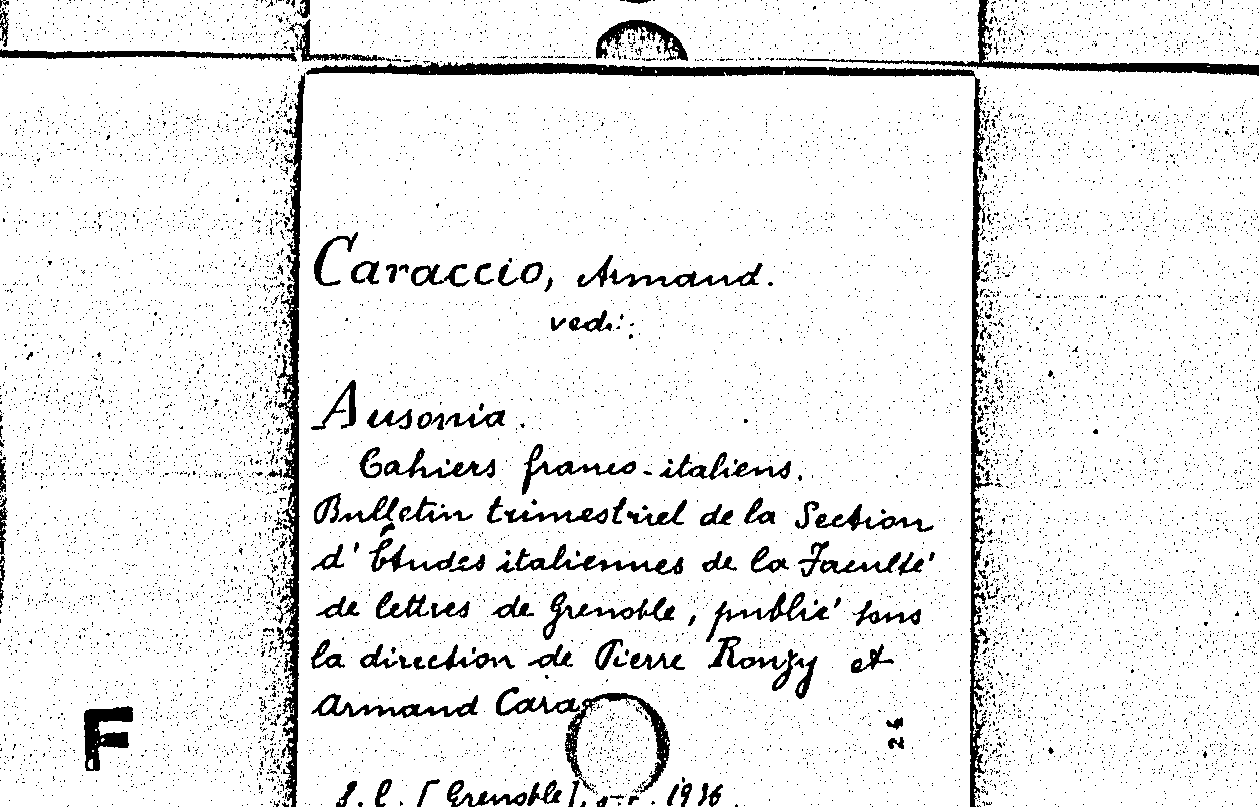 Caraccio, Armand.
vedi:
Ausonia.
Cahiers franco-italiens.
Bulletin trimestriel de la Section
d'Études italiennes de la Faculté
de lettres de Grenoble, publié sous
la direction de Pierre Ronzy et
Armand Cara
F
24
S. l. [Grenoble], 1936.